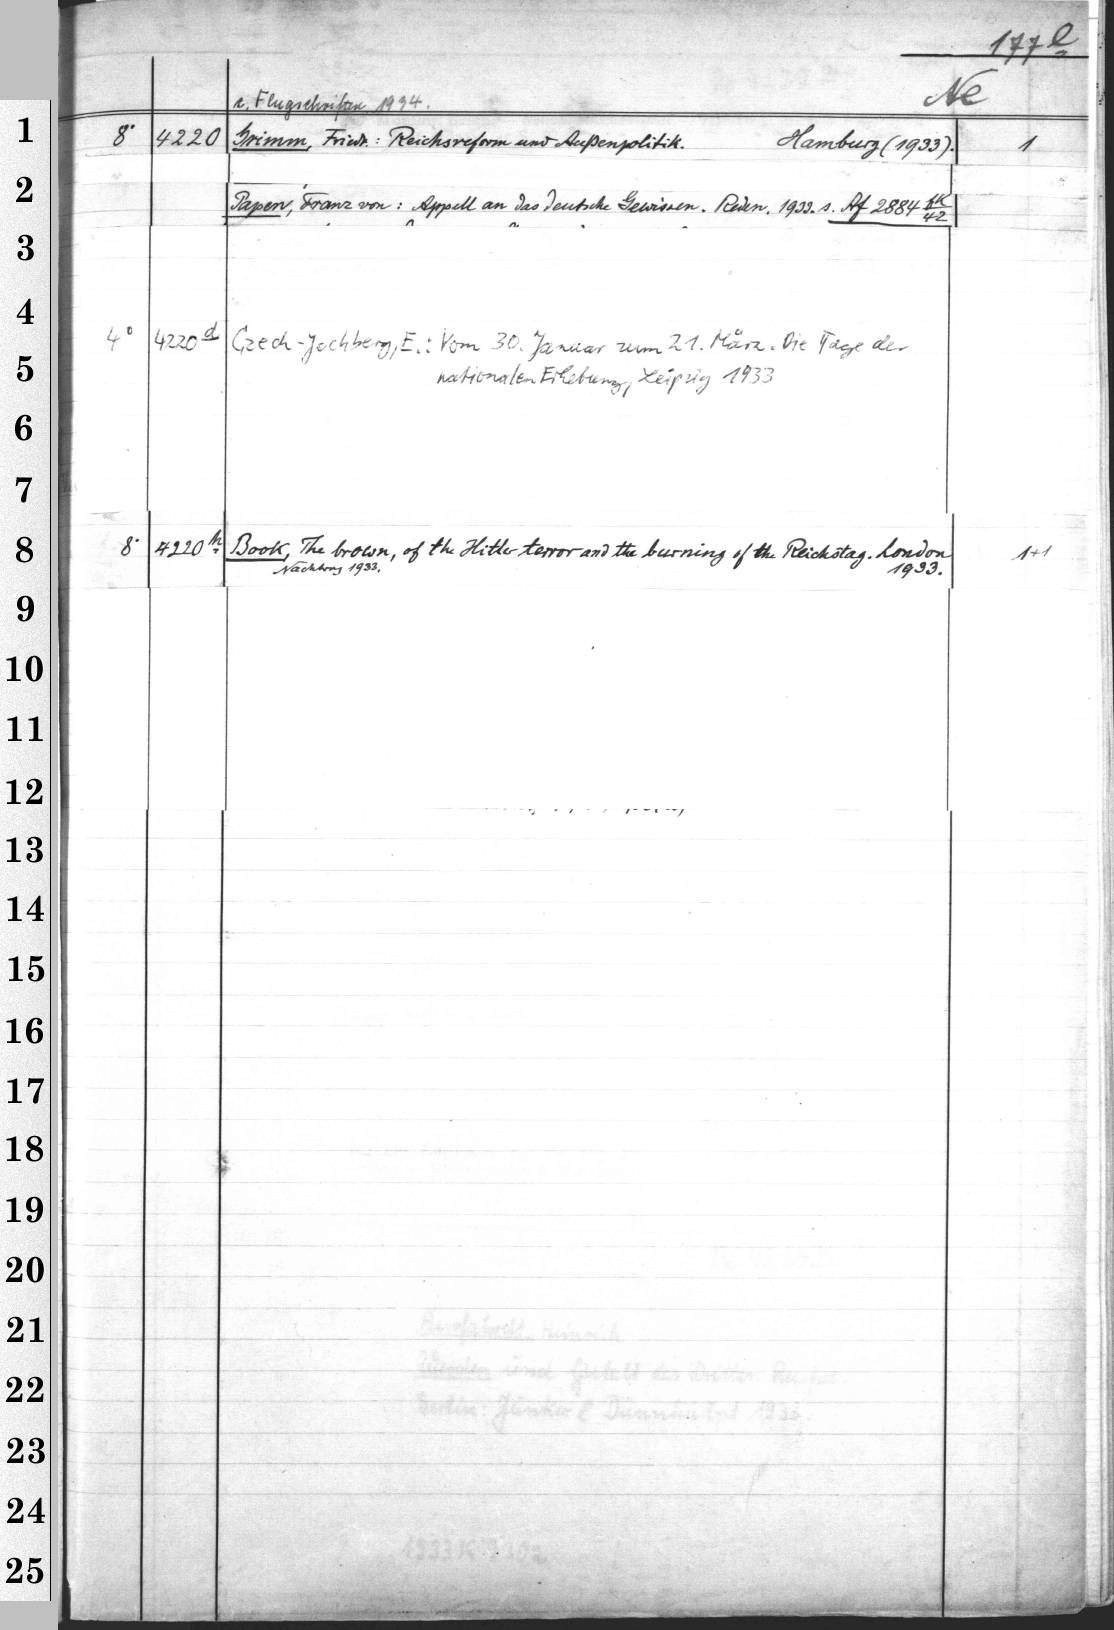 177 e
Ne
s. Flugschriften 1934.
1 8° 4220 Grimm, Friedr.: Reichsreform und Außenpolitik. Hamburg (1933). 1
2 Papen, Franz von: Appell an das deutsche Gewissen. Reden. 1933. s. Af 2884 42
3
4
4° 4220 d Czech-Jochberg, E.: Vom 30. Januar zum 21. März. Die Tage der
5 nationalen Erhebung, Leipzig 1933
6
7
8 8° 4220 h Book, The brown, of the Hitler terror and the burning of the Reichstag. London 1+1
Nachtrag 1933. 1933.
9
10
11
12
13
14
15
16
17
18
19
20
21
22 und Gestalt des Dritten Reiches
Berlin: Junker & Dünnhaupt 1933.
23
24
25